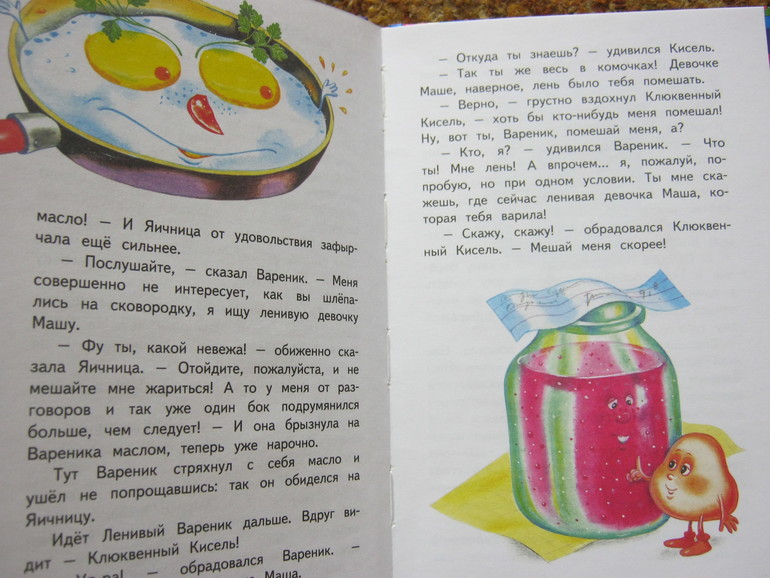 масло! — И Яичница от удовольствия зафыр-
чала ещё сильнее.
— Послушайте, — сказал Вареник. — Меня
совершенно не интересует, как вы шлёпа-
лись на сковородку, я ищу ленивую девочку
Машу.
— Фу ты, какой невежа! — обиженно ска-
зала Яичница. — Отойдите, пожалуйста, и не
мешайте мне жариться! А то у меня от раз-
говоров и так уже один бок подрумянился
больше, чем следует! — И она брызнула на
Вареника маслом, теперь уже нарочно.
Тут Вареник стряхнул с себя масло и
ушёл не попрощавшись: так он обиделся на
Яичницу.
Идёт Ленивый Вареник дальше. Вдруг ви-
дит — Клюквенный Кисель!
— обрадовался Вареник. —
Маша.
— Откуда ты знаешь? — удивился Кисель.
— Так ты же весь в комочках! Девочке
Маше, наверное, лень было тебя помешать.
— Верно, — грустно вздохнул Клюквенный
Кисель, — хоть бы кто-нибудь меня помешал!
Ну, вот ты, Вареник, помешай меня, а?
— Кто, я? — удивился Вареник. — Что
ты! Мне лень! А впрочем... я, пожалуй, по-
пробую, но при одном условии. Ты мне ска-
жешь, где сейчас ленивая девочка Маша, ко-
торая тебя варила!
— Скажу, скажу! — обрадовался Клюквен-
ный Кисель. — Мешай меня скорее!